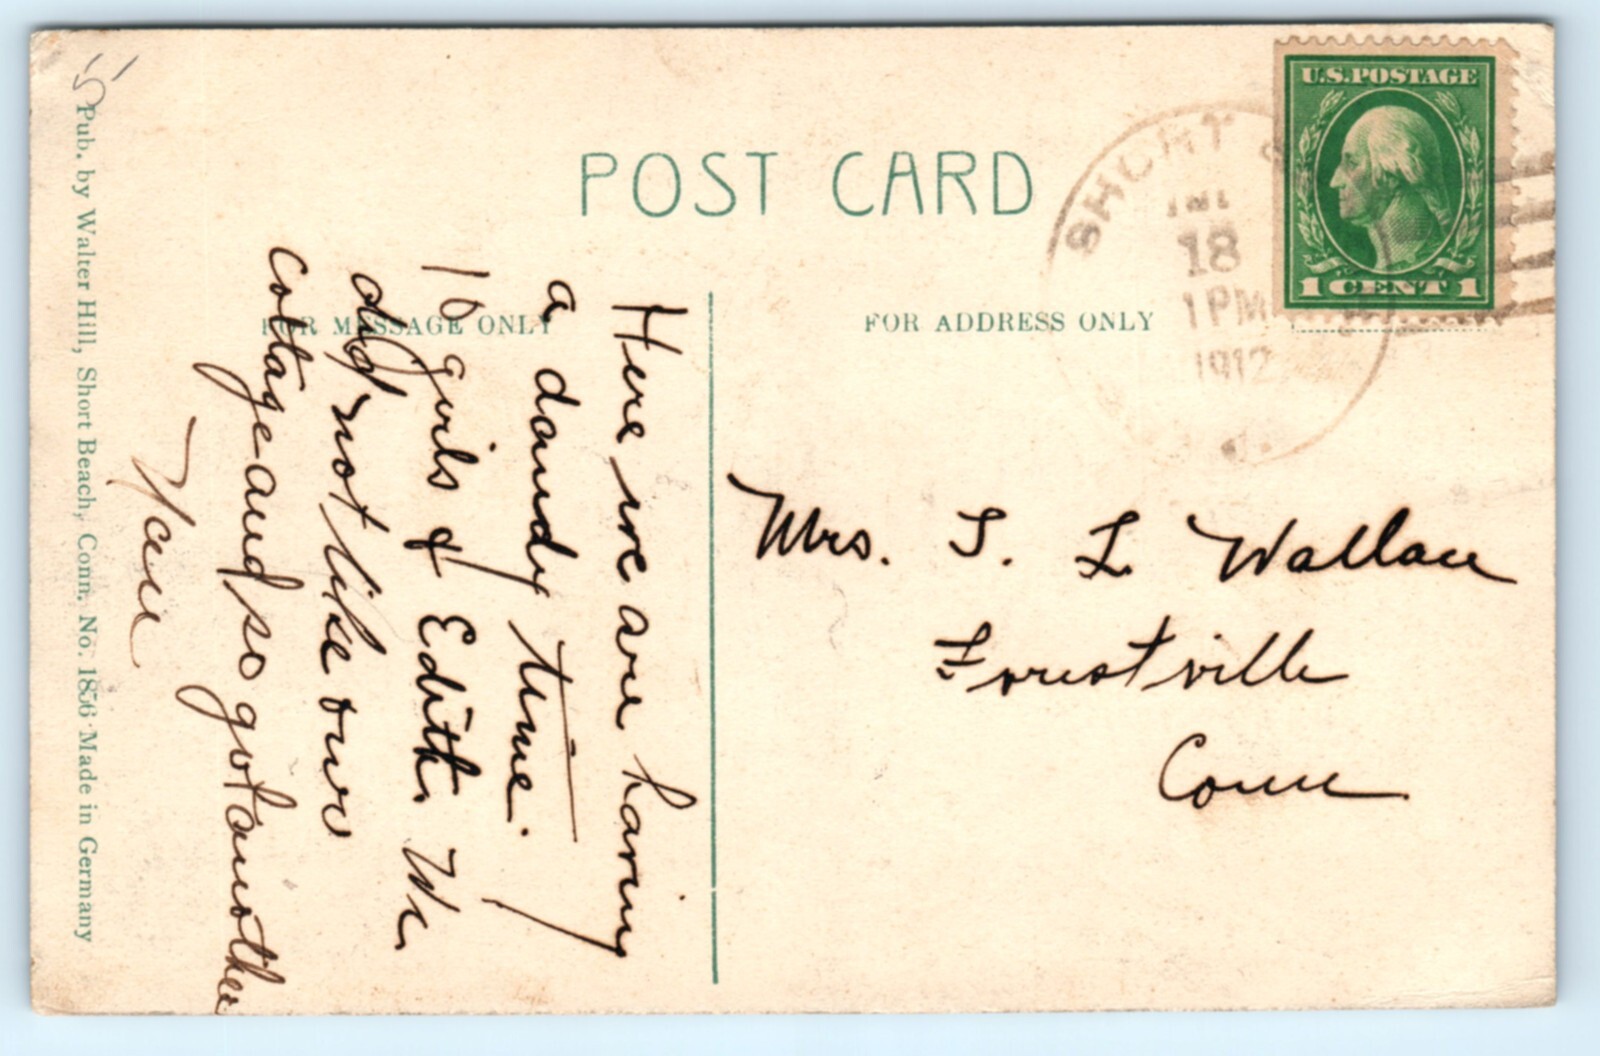 POST CARD
FOR MESSAGE ONLY
FOR ADDRESS ONLY
U.S. POSTAGE
1 CENT 1
SHORT
18
1 PM
1912
Here we are having
a dandy time.
10 girls & Edith. We
did not like our
cottage and so got another
Mrs. S. L Wallace
Forestville
Conn
Pub. by Walter Hill, Short Beach, Conn. No. 1856 Made in Germany